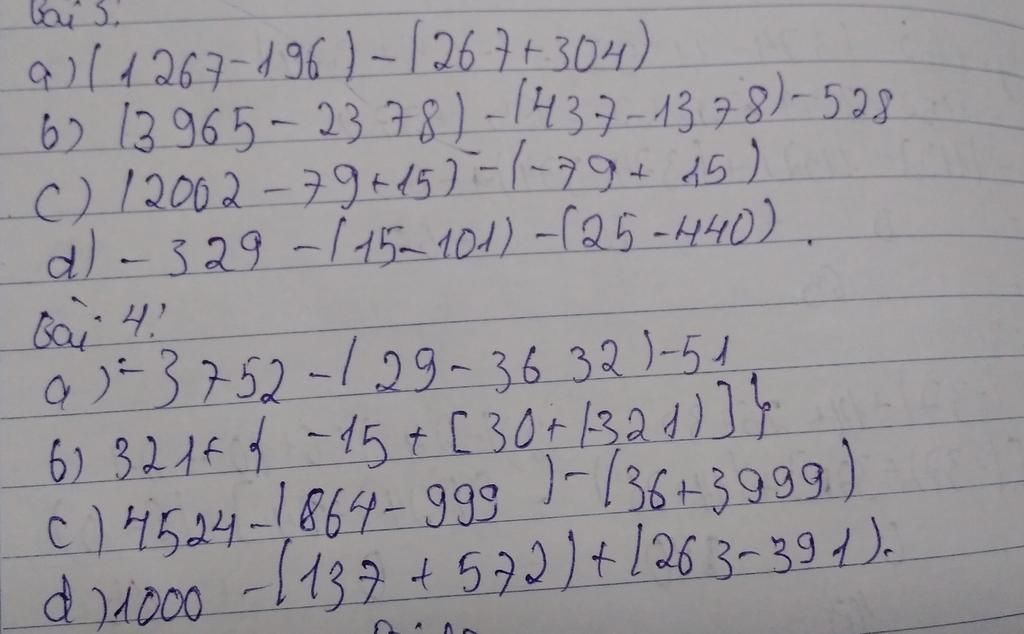 Bài 3:
a) (1267-196) - (267+304)
b) (3965 - 2378) - (437-1378) - 528
c) (2002 - 79+15) - (-79 + 15)
d) - 329 - (15-101) - (25-440).
Bài 4:
a) -3752 - (29 - 3632) - 51
b) 321 + { -15 + [30+(-321)]}
c) 4524 - (864 - 999) - (36+3999)
d) 1000 - (137 + 572) + (263-391).